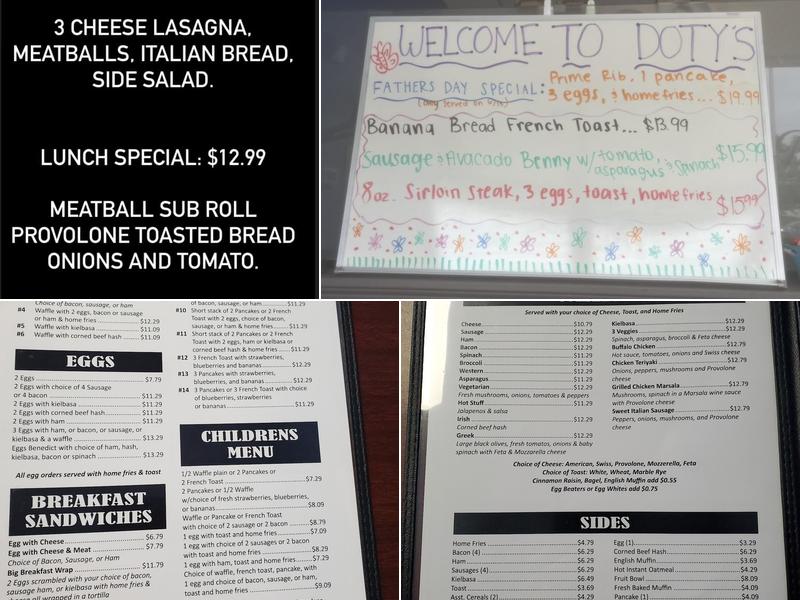 3 CHEESE LASAGNA,
MEATBALLS, ITALIAN BREAD,
SIDE SALAD.
LUNCH SPECIAL: $12.99
MEATBALL SUB ROLL
PROVOLONE TOASTED BREAD
ONIONS AND TOMATO.
WELCOME TO DOTY'S
FATHERS DAY SPECIAL: Prime Rib, 1 pancake,
3 eggs, & homefries... $19.99
Banana Bread French Toast... $13.99
Sausage & Avacado Benny w/ tomato, asparagus & Spinach $15.99
8oz. Sirloin Steak, 3 eggs, toast, homefries $15.99
Choice of bacon, sausage, or ham
#4 Waffle with 2 eggs, bacon or sausage
or ham & home fries $12.29
#5 Waffle with kielbasa $11.09
#6 Waffle with corned beef hash $11.09
EGGS
2 Eggs $7.79
2 Eggs with choice of 4 Sausage
or 4 bacon $11.29
2 Eggs with kielbasa $11.29
2 Eggs with corned beef hash $11.29
2 Eggs with ham $11.29
3 Eggs with ham, or bacon, or sausage, or
kielbasa & a waffle $13.29
Eggs Benedict with choice of ham, hash,
kielbasa, bacon or spinach $13.29
All egg orders served with home fries & toast
BREAKFAST
SANDWICHES
Egg with Cheese $6.79
Egg with Cheese & Meat $7.79
Choice of Bacon, Sausage, or Ham
Big Breakfast Wrap $11.79
2 Eggs scrambled with your choice of bacon,
sausage ham, or kielbasa with home fries &
all wrapped in a tortilla
of bacon, sausage, or ham $11.29
#10 Short stack of 2 Pancakes or 2 French
Toast with 2 eggs, choice of bacon,
sausage, or ham & home fries $11.29
#11 Short stack of 2 Pancakes or 2 French
Toast with 2 eggs, ham or kielbasa or
corned beef hash & home fries $11.29
#12 3 French Toast with strawberries,
blueberries, and bananas $12.29
#13 3 Pancakes with strawberries,
blueberries, and bananas $12.29
#14 3 Pancakes or 3 French Toast with choice
of blueberries, strawberries
or bananas $11.29
CHILDRENS
MENU
1/2 Waffle plain or 2 Pancakes or
2 French Toast $7.29
2 Pancakes or 1/2 Waffle
w/choice of fresh strawberries, blueberries,
or bananas $8.09
Waffle or Pancake or French Toast
with choice of 2 sausage or 2 bacon $8.79
1 egg with toast and home fries $7.09
1 egg with choice of 2 sausages or 2 bacon
with toast and home fries $8.29
1 egg with ham, toast and home fries $7.29
Choice of waffle, french toast, pancake, with
1 egg and choice of bacon, sausage, or ham,
toast and home fries $9.09
Served with your choice of Cheese, Toast, and Home Fries
Cheese $10.79
Sausage $12.29
Ham $12.29
Bacon $12.29
Spinach $11.29
Broccoli $11.29
Western $12.29
Asparagus $11.29
Vegetarian $12.29
Fresh mushrooms, onions, tomatoes & peppers
Hot Stuff $11.29
Jalapenos & salsa
Irish $12.29
Corned beef hash
Greek $12.29
Large black olives, fresh tomatoes, onions & baby
spinach with Feta & Mozzarella cheese
Kielbasa $12.29
3 Veggies $12.29
Spinach, asparagus, broccoli & Feta cheese
Buffalo Chicken $12.79
Hot sauce, tomatoes, onions and Swiss cheese
Chicken Teriyaki $12.79
Onions, peppers, mushrooms and Provolone
cheese
Grilled Chicken Marsala $12.79
Mushrooms, spinach in a Marsala wine sauce
with Provolone cheese
Sweet Italian Sausage $12.79
Peppers, onions, mushrooms, and Provolone
cheese
Choice of Cheese: American, Swiss, Provolone, Mozzerella, Feta
Choice of Toast: White, Wheat, Marble Rye
Cinnamon Raisin, Bagel, English Muffin add $0.55
Egg Beaters or Egg Whites add $0.75
SIDES
Home Fries $4.79
Bacon (4) $6.29
Ham $6.29
Sausages (4) $6.29
Kielbasa $6.49
Toast $3.69
Asst. Cereals (2) $4.29
Egg (1) $3.29
Corned Beef Hash $6.29
English Muffin $3.69
Hot Instant Oatmeal $4.29
Fruit Bowl $8.09
Fresh Baked Muffin $4.09
Pancake (1) $4.09